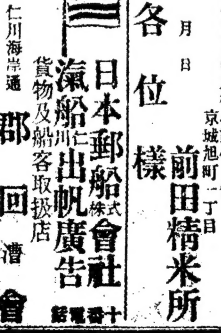 月　日
京城旭町一丁目
前田精米所
各位様
日本郵船株式會社
仁川
滊船出帆廣告
貨物及船客取扱店
仁川海岸通
郡回漕
電話十番